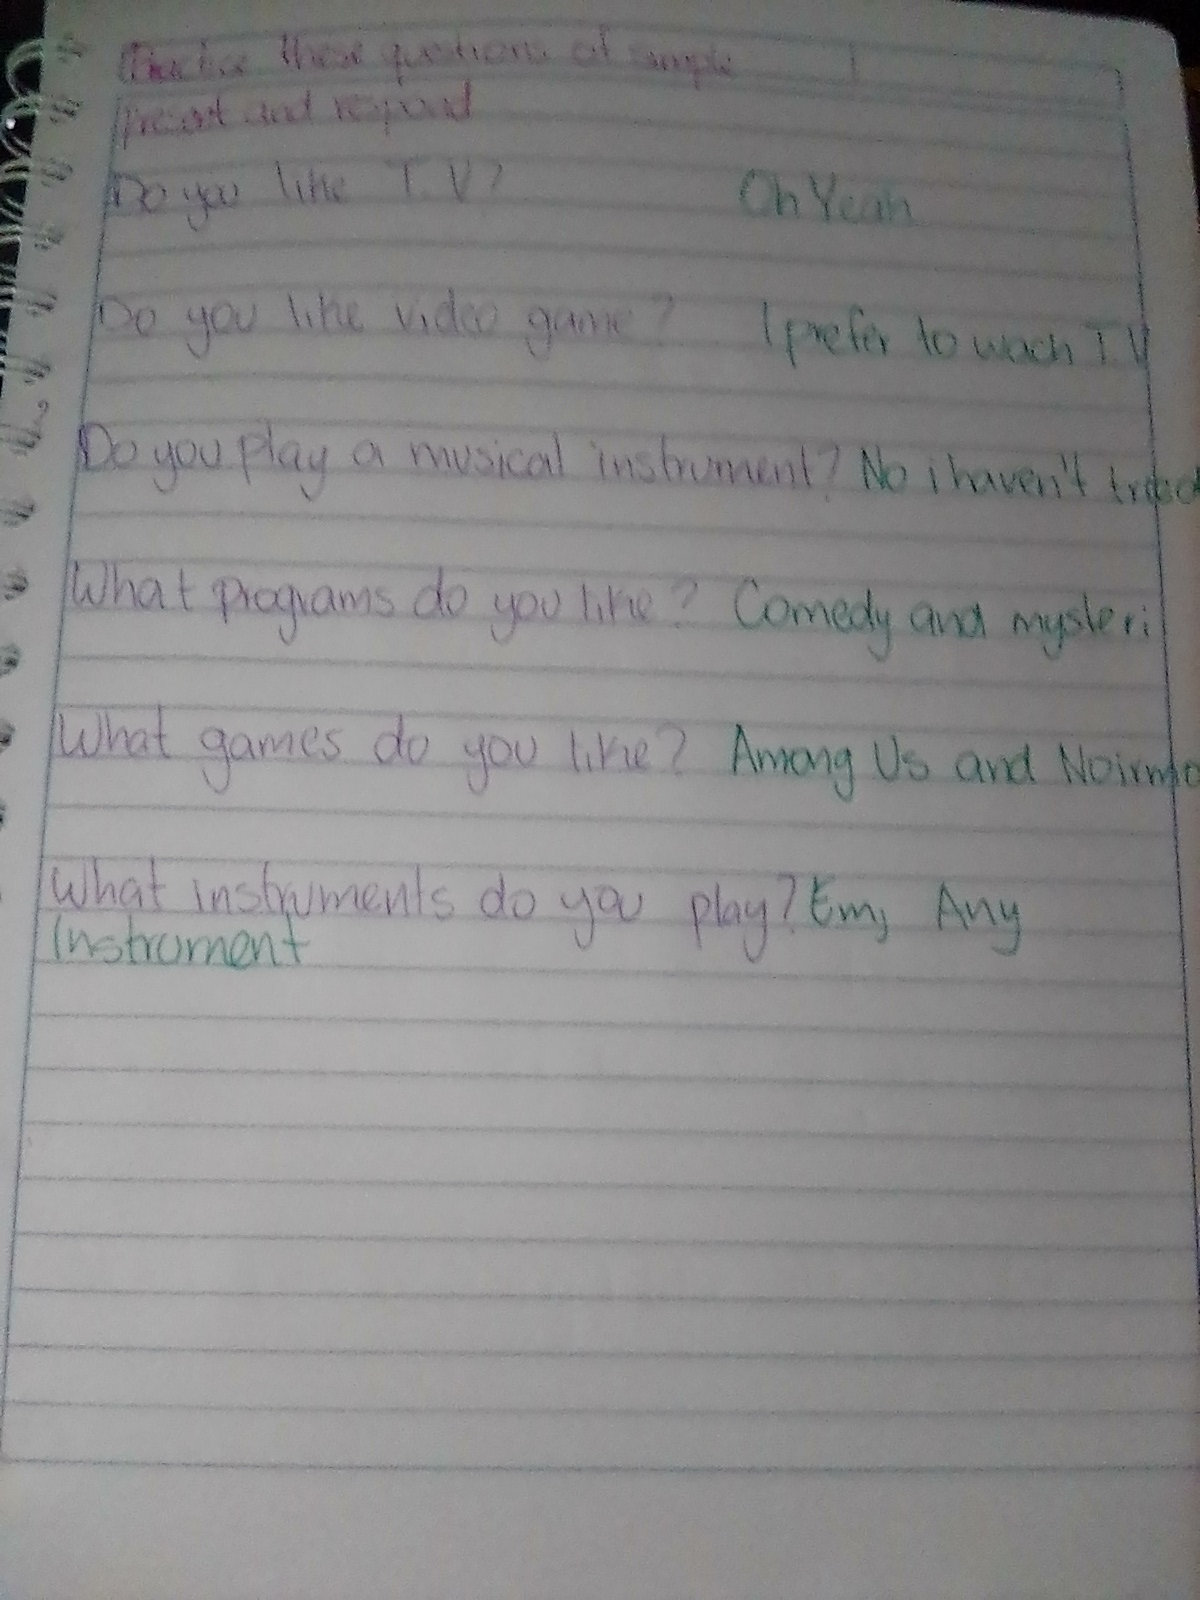 Practice these questions of simple
present and respond
Do you like T.V? Oh Yeah
Do you like video game? I prefer to wach T.V
Do you play a musical instrument? No i haven't
What programs do you like? Comedy and mysteri
What games do you like? Among Us and
What instruments do you play? Em, Any
Instrument